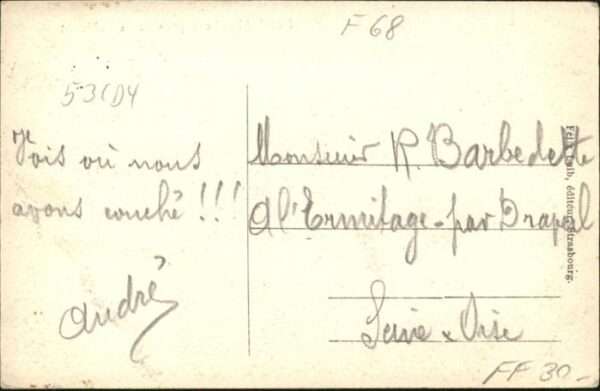 F68
53CD4
Vois où nous
avons couché !!!
André
Monsieur R. Barbedette
A l'Ermitage-par Draveil
Seine x Oise
éditeur, Strasbourg.
FF 30-